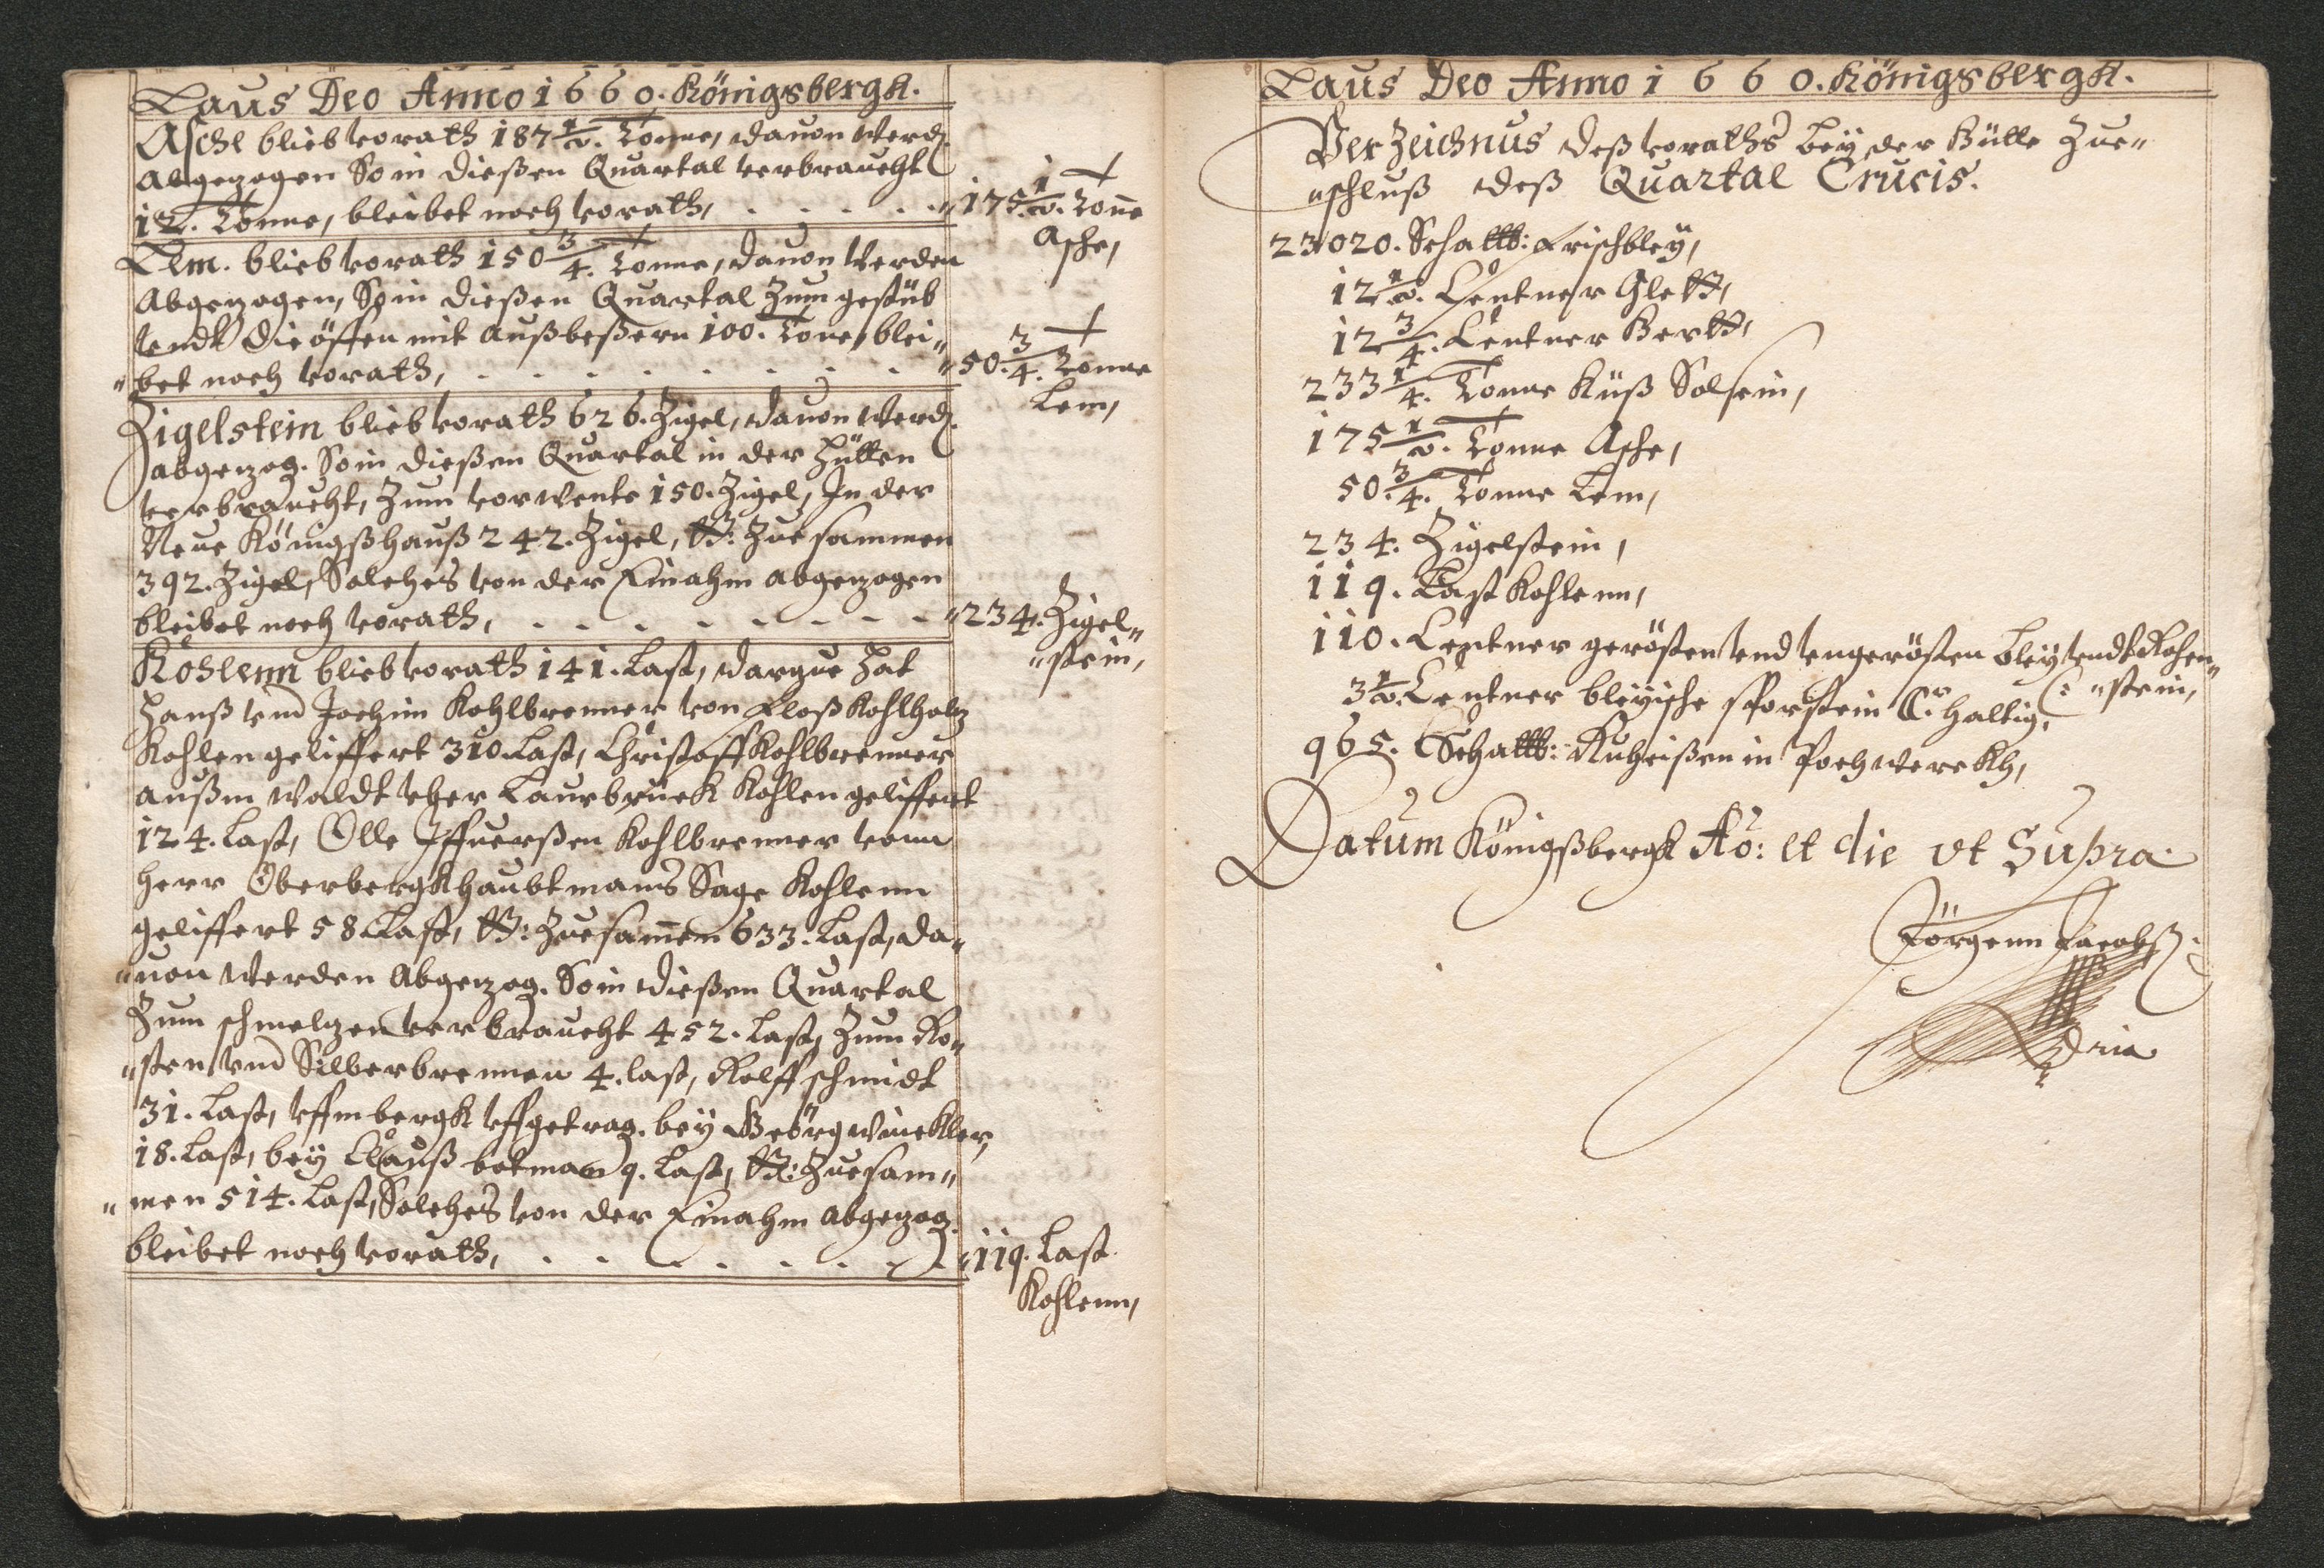 Laus Deo Anno 1660. Königsbergk.
Asche blieb vorath 187 1/2. Tonne, dauon werd.
Abgezogen So in dießen Quartal verbraucht
12. Tonne, bleibet noch vorath, . . . . . "175 1/2. Tone
Asche,
Lem. blieb vorath 150 3/4. Tonne, dauon werden
Abgezogen, So in dießen Quartal Zum gestüb
vndt die öffen mit außbeßern 100. Tone, blei"
"bet noch vorath, . . . . . . . . "50. 3/4. Tonne
Lem,
Zigelstein blieb vorath 626. Zigel, dauon werd.
abgezog. So in dießen Quartal in der Hütten
verbraucht, Zum vorwente 150. Zigel, In der
Neue Königßhauß 242. Zigel, Zue sammen
392. Zigel, Solches von der Einahm abgezogen
bleibet noch vorath, . . . . . . . . "234. Zigel"
"stein,
Kohlenn blieb vorath 141. Last, darzue hat
Hanß vnd Jochim Kohlbrenner von Floß Kohlholz
Kohlen geliffert 310 Last, Christoff Kohlbrenner
außm waldt vber Laurbruck Kohlen geliffert
124. Last, Olle Kohlbrenner vonn
Herr Oberbergkhaubtmans Sage Kohlenn
geliffert 58 Last, Zuesamen 633. Last, da"
"uon werden Abgezog. So in dießen Quartal
Zum schmelzen verbraucht 452. Last, Zum Ro"
"sten vnd Silberbrennen 4. last, Rolff schmidt
31. Last, vffm bergk vffgetrag. bey Geörg winckler,
18. Last, bey Clauß botman 9. Last, Zuesam"
"men 514. Last, Solches von der Einahm abgezog.
bleibet noch vorath, . . . . . . . "119. Last
Kohlenn,
Laus Deo Anno 1660. Königsbergk.
Verzeichnus deß voraths bey der Hütte Zue"
"schluß deß Quartal Crucis.
23020. Schallb: Frischbley,
12 1/2. Centner Glett,
12 3/4. Centner Hertt,
233 1/4. Tonne Küß Solsein,
175 1/2. Tonne Asche,
50. 3/4. Tonne Lem,
234. Zigelstein,
119. Last Kohlenn,
110. Centner gerösten vnd vngerösten bley vndt Rohen"
"stein,
3 1/2. Centner bleyische haltig,
965. Schallb: Ruheißen in Pochwerckh,
Datum Königßbergk Ao: et die vt Supra.
Jörgenn Jacobß.